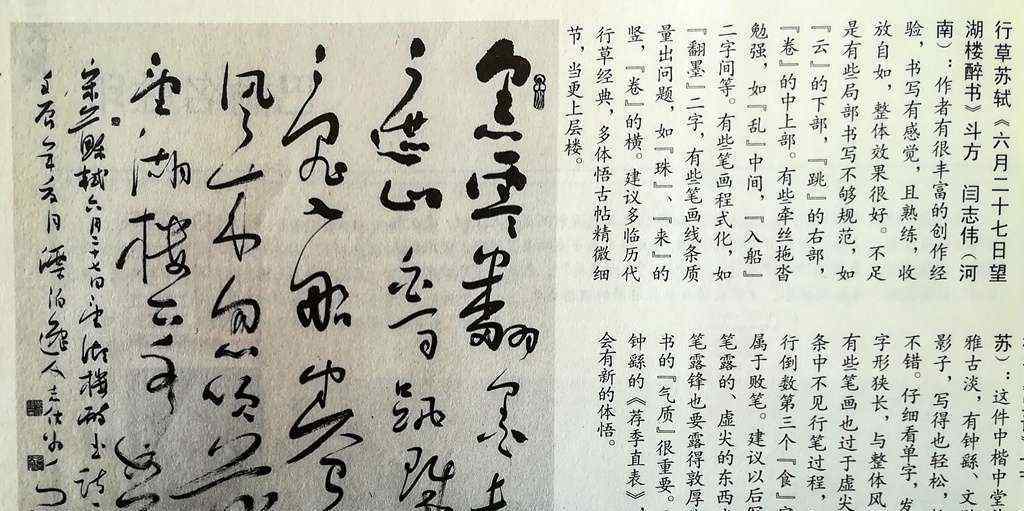 行草苏轼《六月二十七日望
湖楼醉书》斗方 闫志伟（河
南）：作者有很丰富的创作经
验，书写有感觉，且熟练，收
放自如，整体效果很好。不足
是有些局部书写不够规范，如
『云』的下部，『跳』的右部，
『卷』的中上部。有些牵丝拖沓
勉强，如『乱』中间，『入船』
二字间等。有些笔画程式化，如
『翻墨』二字，有些笔画线条质
量出问题，如『珠』、『来』的
竖，『卷』的横。建议多临历代
行草经典，多体悟古帖精微细
节，当更上层楼。
苏）：这件中楷中堂
雅古淡，有钟繇、文
影子，写得也轻松，
不错。仔细看单字，发
字形狭长，与整体风
有些笔画也过于虚尖
条中不见行笔过程，
行倒数第三个『食』字
属于败笔。建议以后写
笔露的、虚尖的东西
笔露锋也要露得敦厚
书的『气质』很重要。
钟繇的《荐季直表》，
会有新的体悟。
黑雲翻墨未
遮山白雨跳珠
亂入船卷地
風来忽吹散
望湖樓下水
六月二十七日望湖樓醉書詩
壬辰年